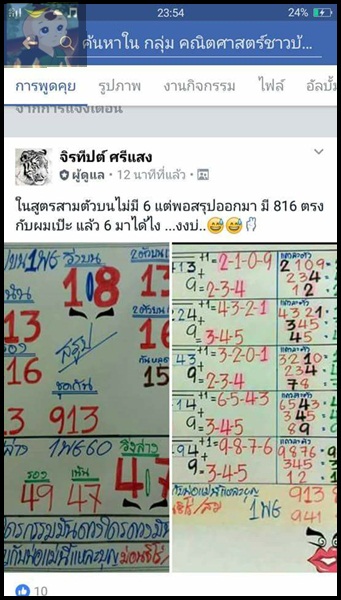 23:54
24%
ค้นหาใน กลุ่ม คณิตศาสตร์ชาวบั...
การพูดคุย รูปภาพ งานกิจกรรม ไฟล์ อัลบั้
จากการแจ้งเตือน
จิรทีปต์ ศรีแสง
ผู้ดูแล • 12 นาทีที่แล้ว •
ในสูตรสามตัวบนไม่มี 6 แต่พอสรุปออกมา มี 816 ตรง
กับผมเป๊ะ แล้ว 6 มาได้ไง ...งงบ่..
บน 1พ6 วิ่งบน 2ตัวบน
1 0 8
13
13
สรุป
16
16
ชุดกัน
15
13 913
1พ660 วิ่งล่าง
รอง เน้น
49 47
4 7
+1
= 2-1-0-9
9 = 2-3-4
2109
234
12
24 +1 = 4-3-2-1
9 = 3-4-5
4321
345
45
43 +1 = 3-2-0-1
9 = 2-3-4
3210
234
78
14 +1 = 6-5-4-3
9 = 3-4-5
6543
345
89
94 +1 = 9-8-7-6
9 = 3-4-5
9876
345
12
913
1พ6
941
10